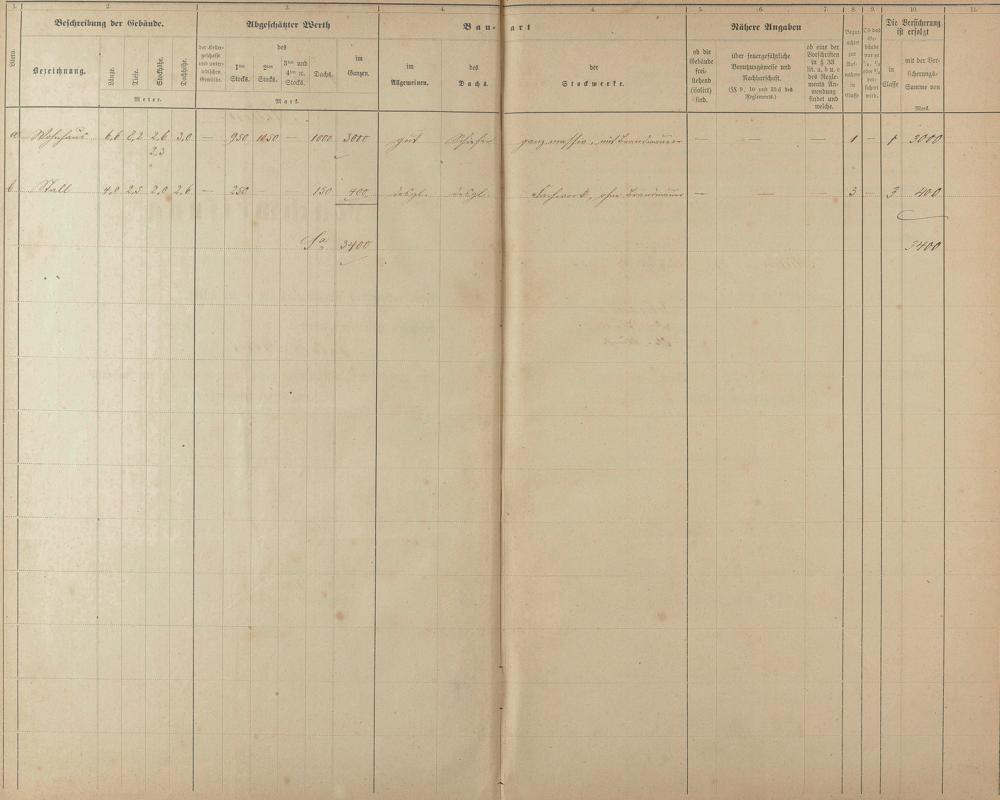 1. 2. 3. 4. 4. 5. 6. 7. 8. 9. 10. 11.
Beschreibung der Gebäude. Abgeschätzter Werth Bau- art Nähere Angaben Die Versicherung ist erfolgt
Bezeichnung. Länge. Tiefe. Stockhöhe. Dachhöhe.
Meter.
des
1ten Stocks. 2ten Stocks. 3ten und 4ten ꝛc. Stocks. Dachs. im Ganzen.
Mark.
im Allgemeinen. des Dachs. der Stockwerke.
ob die Gebäude freistehend (isolirt) sind.
über feuergefährliche Benutzungsweise und Nachbarschaft.
(§§ 9, 10 und 33 d des Reglements.)
ob eine der Vorschriften in § 33 lit. a. b. u. c des Reglements Anwendung findet und welche.
in Classe
mit der Versicherungs-Summe von
Mark.
a Wohnhaus 6,6 8,2 2,6 3,0 — 950 1050 — 1000 3000 gut Schiefer ganz massiv, mit Brandmauer — — 1 — 1 3000
2,3
b Stall 4,0 2,5 2,0 2,6 — 250 — 150 400 desgl. desgl. Fachwerk, ohne Brandmauer — — 3 — 3 400
Sa 3400 3400